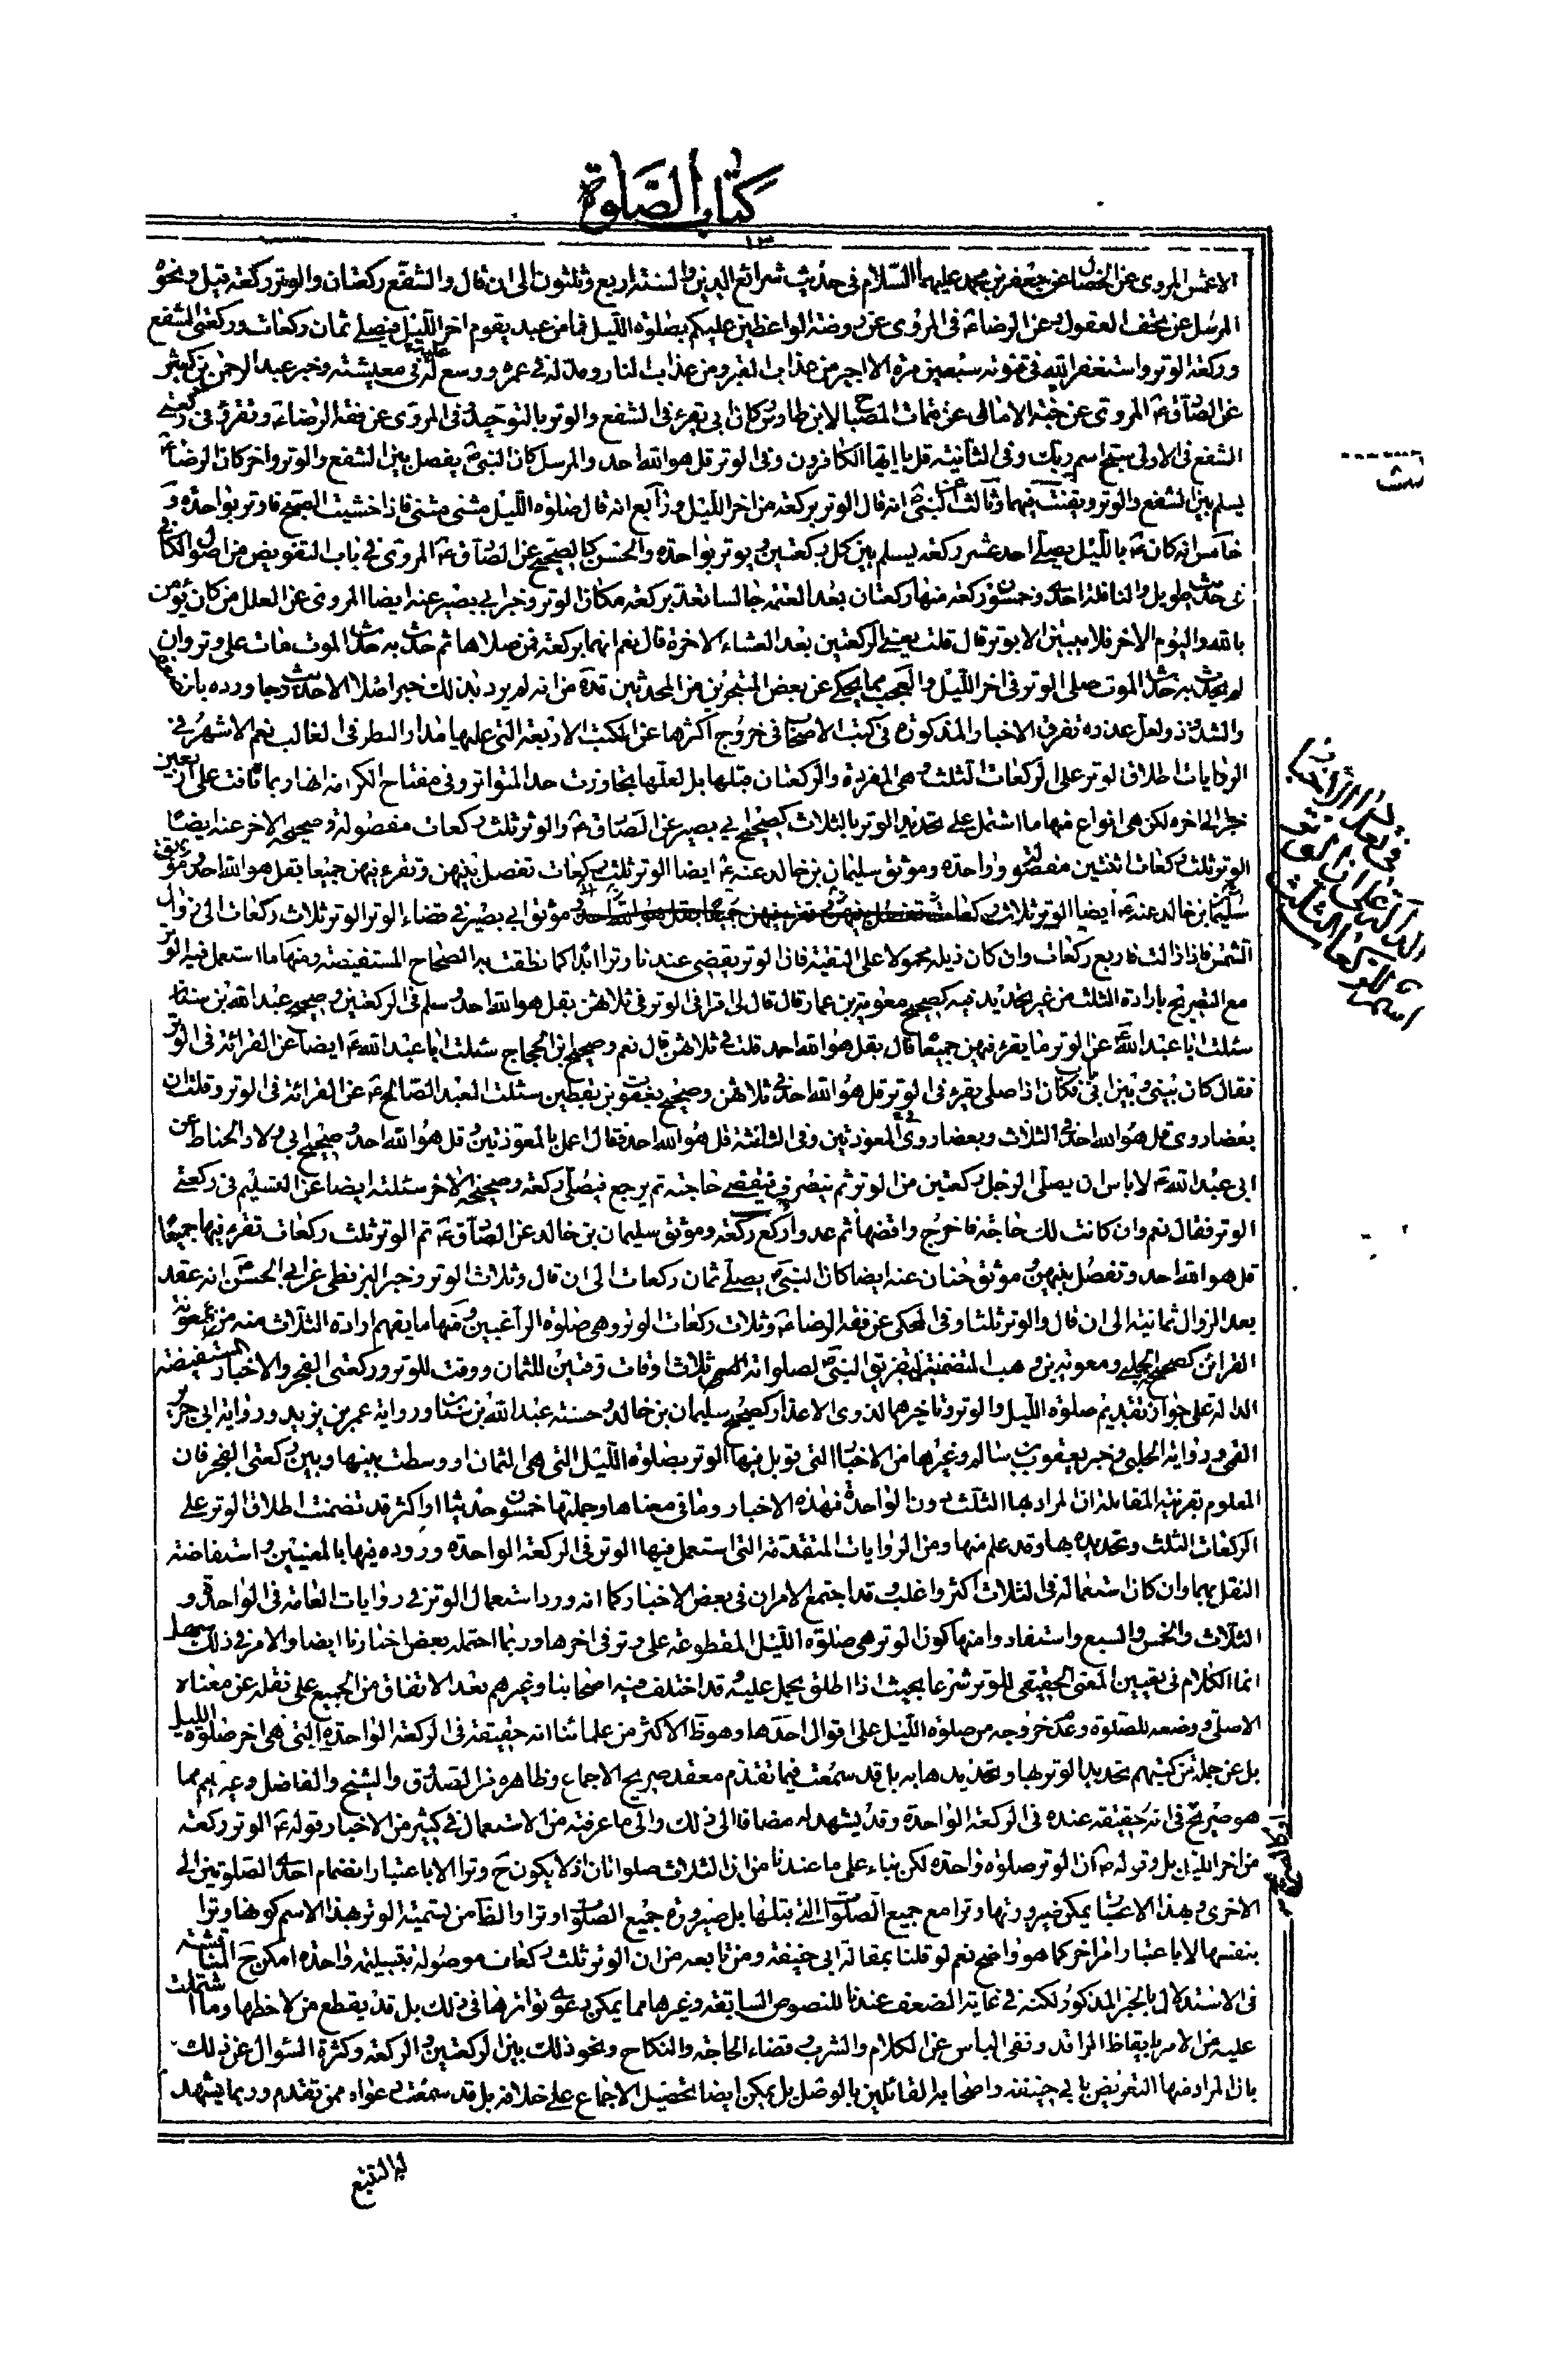 كتاب الصلوة
١٣
الاعمش المروى عن الخصال عن جعفر بن محمد عليهما السلام فى حديث شرائع الدين والسنة اربع وثلثون الى ان قال والشفع ركعتان والوتر ركعة قيل ونحوه
المرسل عن تحف العقول عن الرضاء ع فى المروى عن روضة الواعظين عليكم بصلوة الليل فما من عبد يقوم اخر الليل فيصلى ثمان ركعات وركعتى الشفع
وركعة الوتر واستغفر الله فى قنوته سبعين مرة الا اجير من عذاب القبر ومن عذاب النار ومد له فى عمره ووسع عليه فى معيشته وخبر عبد الرحمن بن كثير
عن الصادق ع المروى عن الامالى عن المصباح لابن طاوس كان ابى يقرء فى الشفع والوتر بالتوحيد وفى المروى عن فقه الرضاء ع وتقرء فى ركعتى
الشفع فى الاولى سبح اسم ربك وفى الثانية قل يا ايها الكافرون وفى الوتر قل هو الله احد والمرسل كان النبى ص يفصل بين الشفع والوتر واخر كان الرضاء ع
يسلم بين الشفع والوتر ويقنت فيهما وثالث عن النبى ص انه قال الوتر ركعة من اخر الليل ورابع انه قال صلوة الليل مثنى مثنى فاذا خشيت الصبح فاوتر بواحدة و
خامس انه كان ع بالليل يصلى احد عشر ركعة يسلم بين كل ركعتين ويوتر بواحدة والحسن كالصحيح عن الصادق ع المروى فى باب التفويض من اصول الكافى
فى حديث طويل والنافلة احدى وخمسون ركعة منها ركعتان بعد العتمة جالسا تعد بركعة مكان الوتر وخبر ابى بصير عنه ايضا المروى عن العلل من كان يؤمن
بالله واليوم الاخر فلا يبيتن الا بوتر قال قلت يعنى الركعتين بعد العشاء الاخرة قال نعم انهما بركعة فمن صلاها ثم حدث به حدث الموت مات على وتر وان
لم يحدث به حدث الموت صلى الوتر فى اخر الليل والعجب مما يحكى عن بعض المتبحرين من المحدثين قده من انه لم يرد بذلك خبر اصلا الا حديث رجا ورده
والشذوذ ولعل عذره تفرق الاخبار المذكورة فى كتب الاصحاب فى خروج اكثرها عن الكتب الاربعة التى عليها مدار النظر فى الغالب نعم الاشهر فى
الروايات اطلاق الوتر على الركعات الثلث وهى المفردة والركعتان قبلها بل لعلها تجاوزت حد المتواتر وفى مفتاح الكرامة انها ربما نافت على اربعين
خبرا الى اخره لكن هى انواع فمنها ما اشتمل على تحديد الوتر بالثلاث كصحيح ابى بصير عن الصادق ع والوتر ثلث ركعات مفصولة وصحيحه الاخر عنه ايضا
الوتر ثلث ركعات ثنتين مفصولة وواحدة وموثق سليمان بن خالد عنه ع ايضا الوتر ثلث ركعات تفصل بينهن وتقرء فيهن جميعا بقل هو الله احد وموثق
سليمان بن خالد عنه ع ايضا الوتر ثلاث ركعات تفصل بينهن وتقرء فيهن جميعا بقل هو الله احد وموثق ابى بصير فى قضاء الوتر الوتر ثلاث ركعات الى زوال
الشمس فاذا زالت فاربع ركعات وان كان ذيله محمولا على التقية فان الوتر يقضى عندنا وترا ابدا كما نطقت به الصحاح المستفيضة ومنها ما استعمل فيه الوتر
مع التصريح بارادة الثلث من غير تحديد فيه كصحيح معوية بن عمار قال قال لى اقرا فى الوتر فى ثلاثهن بقل هو الله احد وسلم فى الركعتين وصحيح عبد الله بن سنان
سئلت ابا عبد الله ع عن الوتر ما يقرء فيهن جميعا قال بقل هو الله احد قلت فى ثلاثهن قال نعم وصحيح ابن الحجاج سئلت ابا عبد الله ع ايضا عن القرائة فى الوتر
فقال كان بينى وبين ابى باب فكان اذا صلى يقرء فى الوتر قل هو الله احد فى ثلاثهن وصحيح يعقوب بن يقطين سئلت العبد الصالح ع عن القرائة فى الوتر وقلت ان
بعضا روى قل هو الله احد فى الثلاث وبعضا روى فى المعوذتين وفى الثالثة قل هو الله احد فقال اعمل بالمعوذتين وقل هو الله احد وصحيح ابى ولاد الحناط عن
ابى عبد الله ع لا باس ان يصلى الرجل ركعتين من الوتر ثم ينصرف فيقضى حاجته ثم يرجع فيصلى ركعة وصحيحه الاخر سئلته ايضا عن التسليم فى ركعتى
الوتر فقال نعم وان كانت لك حاجة فاخرج واقضها ثم عد واركع ركعة وموثق سليمان بن خالد عن الصادق ع ثم الوتر ثلث ركعات تقرء فيها جميعا
قل هو الله احد وتفصل بينهن وموثق حنان عنه ايضا كان النبى ص يصلى ثمان ركعات الى ان قال وثلاث الوتر وخبر البزنطى عن ابى الحسن ع انه عقد
بعد الزوال ثمانية الى ان قال والوتر ثلثا وفى المحكى عن فقه الرضاء ع وثلاث ركعات الوتر وهى صلوة الراغبين ومنها ما يفهم ارادة الثلاث منه من بمعونة
القرائن كصحيح الحلبى ومعوية بن وهب المتضمنة لتفريق النبى ص لصلواته ثلاث اوقات وقتين للثمان ووقت للوتر وركعتى الفجر والاخبار المستفيضة
الدالة على جواز تقديم صلوة الليل والوتر وتاخيرهما لذوى الاعذار كصحيح سليمان بن خالد وحسنة عبد الله بن سنان ورواية عمر بن يزيد ورواية ابى جرير
القمى ورواية الحلبى وخبر يعقوب بن سالم وغيرها من الاخبار التى قوبل فيها الوتر بصلوة الليل التى هى الثمان او وسطت بينها وبين ركعتى الفجر فان
المعلوم بقرينة المقابلة ان المراد بها الثلث دون الواحدة فهذه الاخبار وما فى معناها وجملتها خمسون حديثا او اكثر قد تضمنت اطلاق الوتر على
الركعات الثلث وتحديده بها وقد علم منها ومن الروايات المتقدمة التى استعمل فيها الوتر فى الركعة الواحدة وروده فيها بالمعنيين واستفاضة
النقل بهما وان كان استعماله فى الثلاث اكثر واغلب وقد اجتمع الامران فى بعض الاخبار كما انه ورد استعمال الوتر فى روايات العامة فى الواحدة و
الثلاث والخمس والسبع واستفادوا منها كون الوتر هى صلوة الليل المقطوعة على وتر فى اخرها وربما احتمله بعض اخبارنا ايضا والامر فى ذلك سهل
انما الكلام فى تعيين المعنى الحقيقى للوتر شرعا بحيث اذا اطلق يحمل عليه وقد اختلف فيه اصحابنا وغيرهم بعد الاتفاق من الجميع على نقله عن معناه
الاصلى ووضعه للصلوة وعدم خروجه من صلوة الليل على اقوال احدها وهو ظ الاكثر من علمائنا انه حقيقة فى الركعة الواحدة التى هى اخر صلوة الليل
بل عن جملة من كتبهم تحديد الوتر بها وتحديدها به بل قد سمعت فيما تقدم معقد صريح الاجماع وظاهره من الصدوق والشيخ والفاضل وغيرهم مما
هو صريح فى انه حقيقة عنده فى الركعة الواحدة وقد يشهد له مضافا الى ذلك والى ما عرفته من الاستعمال فى كثير من الاخبار قوله ع الوتر ركعة
من اخر الليل بل وقوله ع ان الوتر صلوة واحدة لكن بناء على ما عندنا من ان الثلاث صلوتان اذ لا يكون ح وترا الا باعتبار انضمام احدى الصلوتين الى
الاخرى وبهذا الاعتبار يمكن صيرورتها وترا مع جميع الصلوات التى قبلها بل صيرورة جميع الصلوة وترا والظ من تسمية الوتر بهذا الاسم كونها وترا
بنفسها لا باعتبار امر اخر كما هو واضح نعم لو قلنا بمقالة ابى حنيفة ومن تابعه من ان الوتر ثلث ركعات موصولة بتسليمة واحدة امكن ح المناقشة
فى الاستدلال بالخبر المذكور لكنه فى غاية الضعف عندنا للنصوص السابقة وغيرها مما يمكن دعوى تواترها فى ذلك بل قد يقطع من لاحظها وما اشتملت
عليه من الامر بايقاظ الراقد ونفى الباس عن الكلام والشرب وقضاء الحاجة والنكاح ونحو ذلك بين الركعتين والركعة وكثرة السؤال عن ذلك
بان المراد منها التعريض بابى حنيفة واصحابه القائلين بالوصل بل يمكن ايضا تحصيل الاجماع على خلافه بل قد سمعت دعواه ممن تقدم وربما يشهد
له التتبع